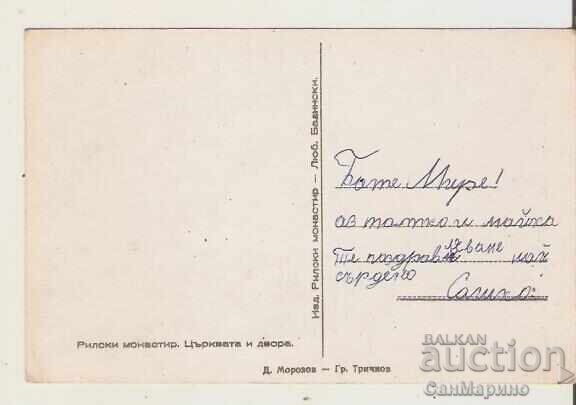 Изд. Рилски монастир — Люб. Бадински.
Бате Мире!
аз татко и майка
Те поздравяваме най
сърдечно
Рилски монастир. Църквата и двора.
Д. Морозов — Гр. Тричков
BALKAN
auction
СанМарино